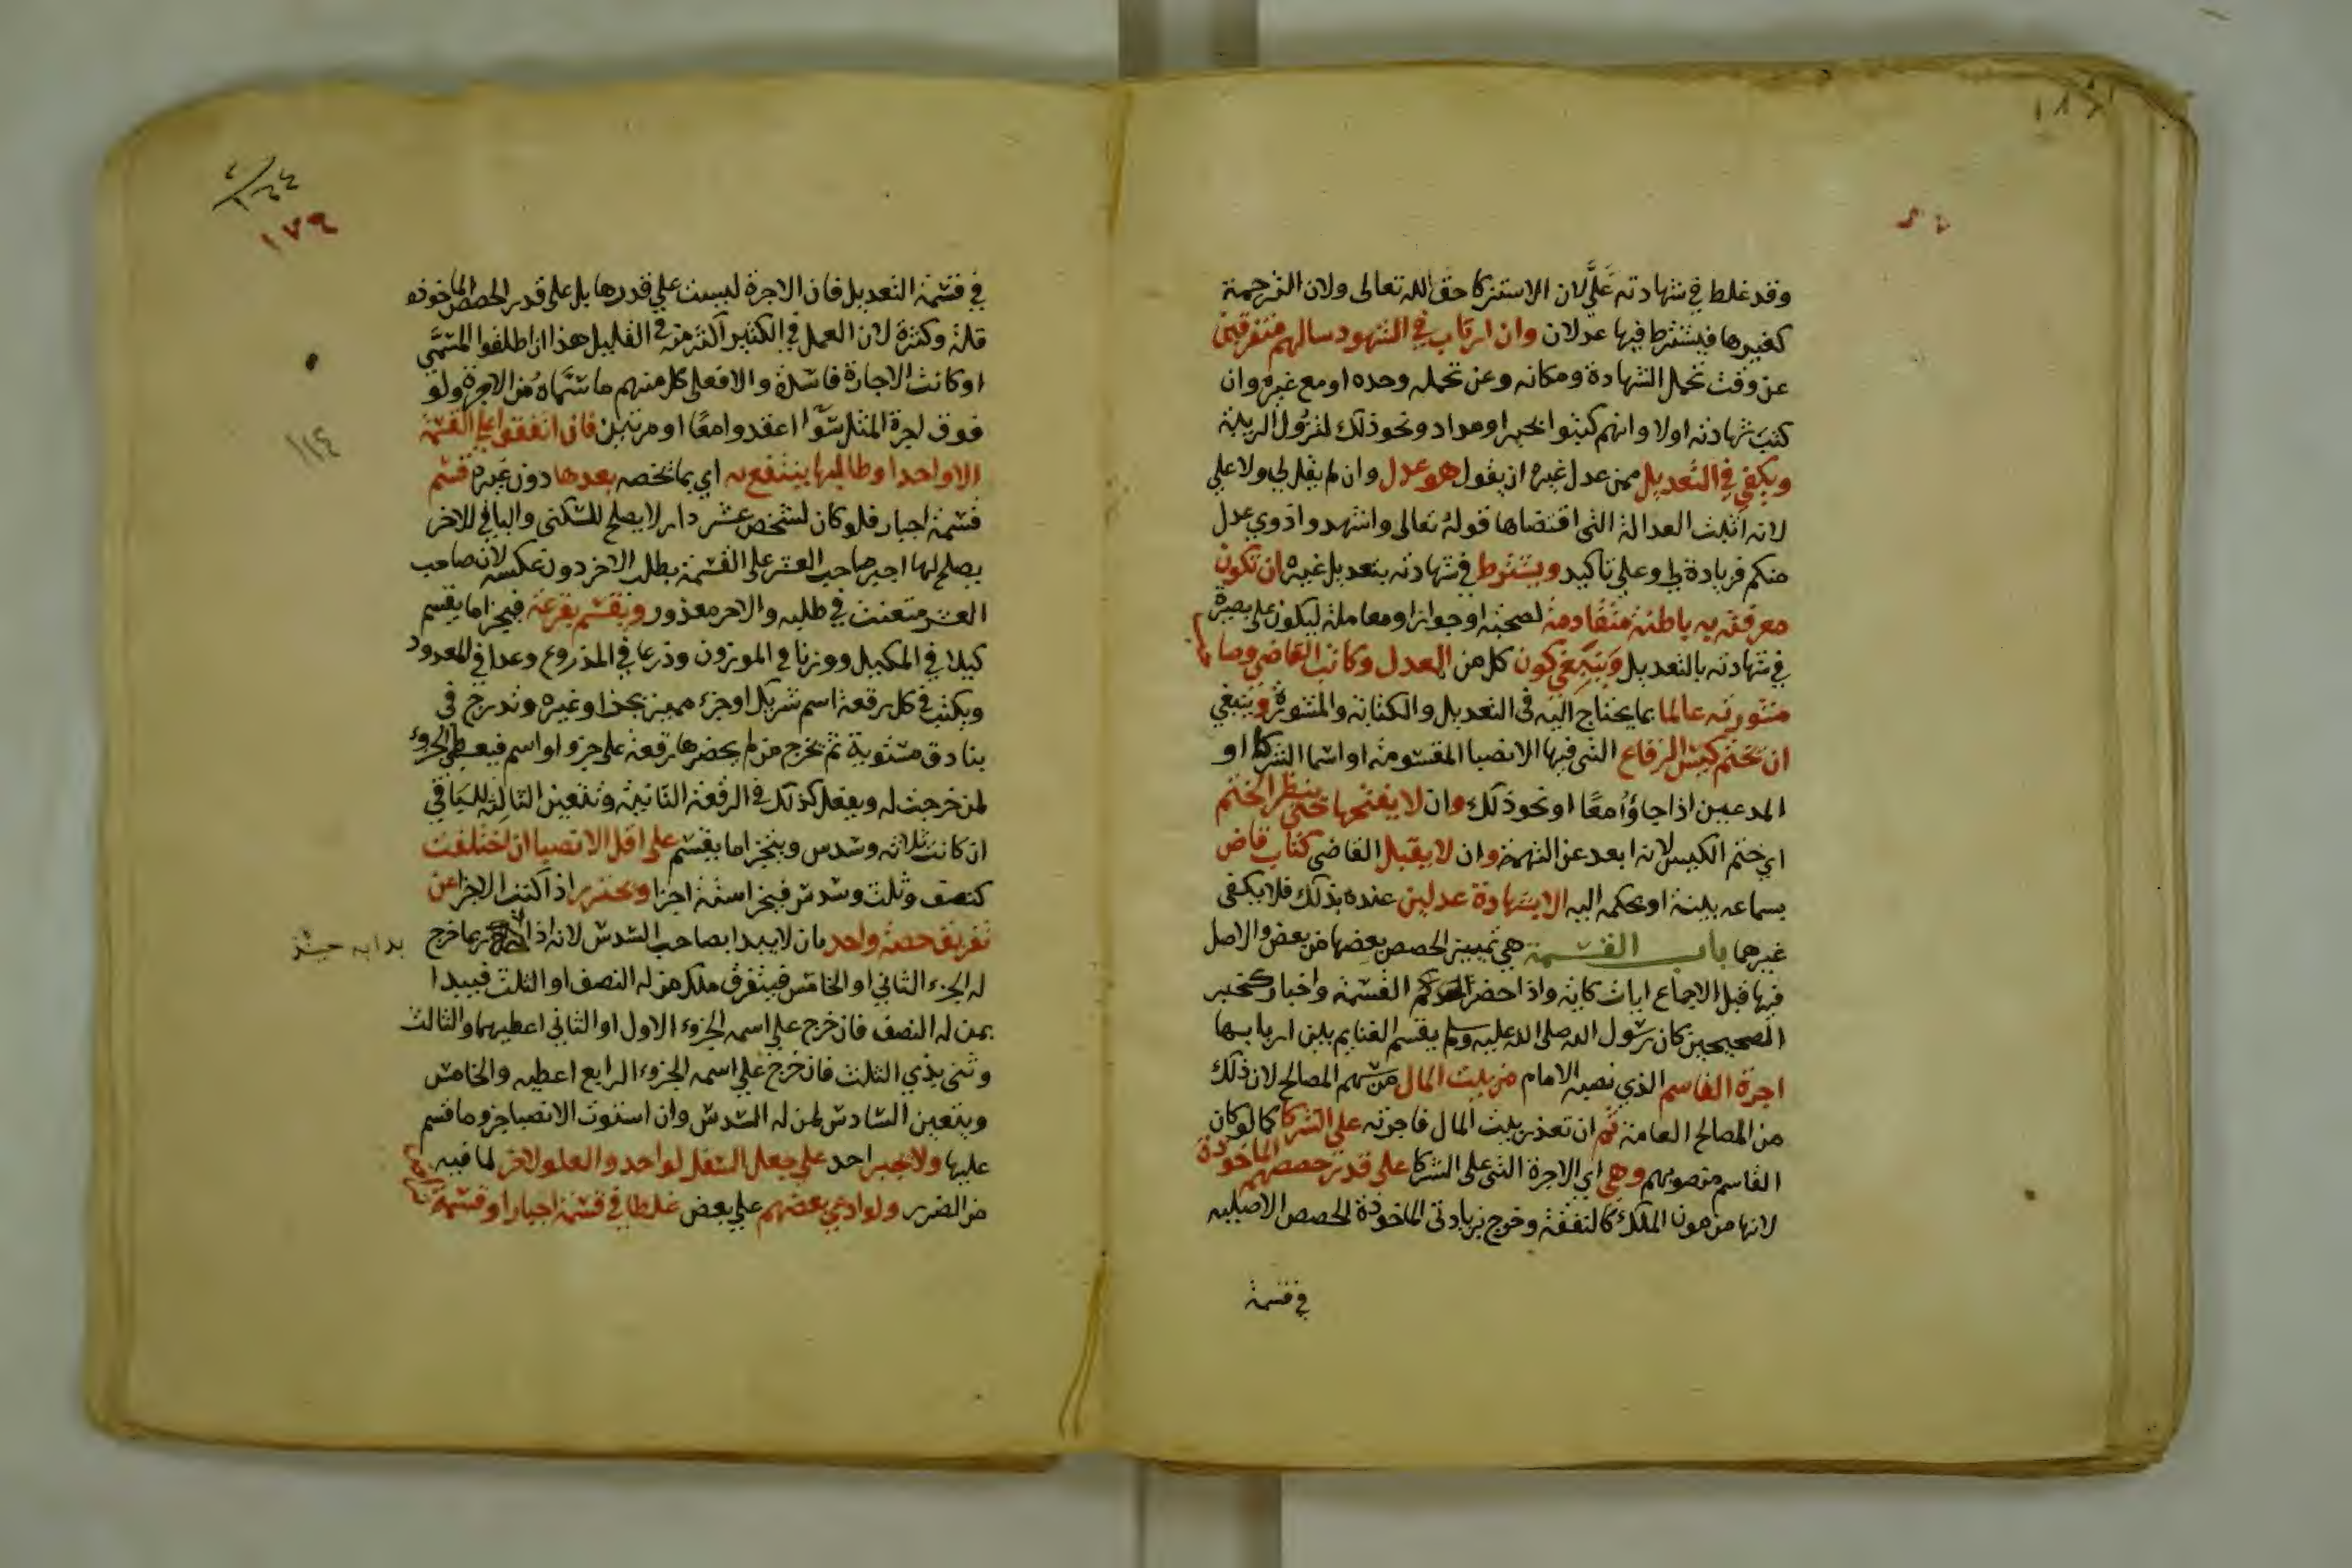 وقد غلط في شهادته عليَّ لان الاستزكا حق الله تعالى ولان الترجمة
كغيرها فيشترط فيها عدلان وان ارتاب في الشهود سالهم متفرقين
عن وقت تحمل الشهادة ومكانه وعن تحمله وحده او مع غيره وان
كتب شهادته اولا وانهم كتبوا بحبر او مداد ونحو ذلك لتزول الريبة
ويكفي في التعديل ممن عدل غيره ان يقول هو عدل وان لم يقل لي ولا علي
لانه اثبت العدالة التي اقتضاها قوله تعالى واشهدوا ذوي عدل
منكم فزيادة لي وعلي تاكيد ويشترط في شهادته بتعديل غيره ان تكون
معرفته به باطنة متقادمة لصحبة او جوار او معاملة ليكون على بصيرة
في شهادته بالتعديل وينبغي كون كل من العدل وكاتب القاضي وصاحب
مشورته عالما بما يحتاج اليه في التعديل والكتابة والمشورة وينبغي
ان تختم كيس الرقاع التي فيها الانصبا المقسومة او اسما الشركا او
المدعين اذا جاؤا معا او نحو ذلك وان لا يفتحها حتى ينظر الختم
اي ختم الكيس لانه ابعد عن التهمة وان لا يقبل القاضي كتاب قاض
بسماعه بينة او بحكمه اليه الا بشهادة عدلين عنده بذلك فلا يكفي
غيرهما باب القسمة هي تمييز الحصص بعضها من بعض والاصل
فيها قبل الاجماع ايات كاية واذا حضر القسمة واخبار كخبر
الصحيحين كان رسول الله صلى الله عليه وسلم يقسم الغنايم بين اربابها
اجرة القاسم الذي نصبه الامام من بيت المال من سهم المصالح لان ذلك
من المصالح العامة ثم ان تعذر بيت المال فاجرته على الشركا كما لو كان
القاسم منصوبهم وهي اي الاجرة التي على الشركا على قدر حصصهم الماخوذة
لانها من مون الملك كالنفقة وخرج بزيادتي الماخوذة الحصص الاصليه
في قسمة
١٧٩
١١٤
في قسمة التعديل فان الاجرة ليست علي قدرها بل على قدر الحصص الماخوذه
قلة وكثرة لان العمل في الكثير اكثر منه في القليل هذا ان اطلقوا المسمي
او كانت الاجارة فاسدة والا فعلى كل منهم ما سماه من الاجرة ولو
فوق اجرة المثل سوا اعقدوا معا او مرتبين فان اتفقوا علي القسمة
الا واحدا وطالبها ينتفع به اي بما يخصه بعدها دون غيره قسم
قسمة اجبار فلو كان لشخص عشر دار لا يصلح للسكنى والباقي للاخر
يصلح لها اجبر صاحب العشر على القسمة بطلب الاخر دون عكسه لان صاحب
العشر متعنت في طلبه والاخر معذور ويقسم بقرعة فيجزا ما يقسم
كيلا في المكيل ووزنا في الموزون وذرعا في المذروع وعدا في المعدود
ويكتب في كل رقعة اسم شريك او جزء مميز بحد او غيره وتدرج في
بنادق مستوية ثم يخرج من لم يحضرها رقعة على جزو او اسم فيعطي الجزوء
لمن خرجت له ويفعل كذلك في الرقعة الثانية وتتعين الثالثة للباقي
ان كانت ثلاثه وسدس ويتجزا ما يقسم على اقل الانصبا ان اختلفت
كنصف وثلث وسدس فيجزا ستة اجزا ويحترز اذا اكتب الاجزا عن
تفريق حصة واحد بان لا يبدا بصاحب السدس لانه اذا ربما خرج
له الجزء الثاني او الخامس فيتفرق ملك من له النصف او الثلث فيبدا
بمن له النصف فان خرج علي اسمه الجزوء الاول او الثاني اعطيهما والثالث
وثنى بذي الثلث فان خرج علي اسمه الجزوء الرابع اعطيه والخامس
ويتعين السادس لمن له السدس وان استوت الانصبا جزو ما قسم
عليها ولا يجبر احد علي جعل السفل لواحد والعلو لاخر لما فيه
من الضرر ولو ادعي بعضهم علي بعض غلطا في قسمة اجبار او قسمة